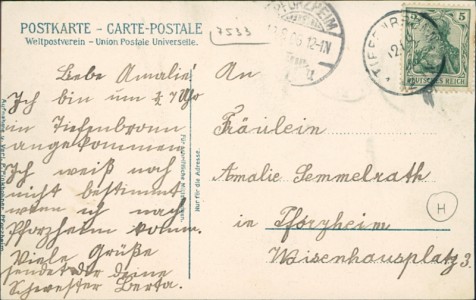 POSTKARTE - CARTE-POSTALE
Weltpostverein - Union Postale Universelle.
7533
PFORZHEIM
12-1N
TIEFENBRONN
5
DEUTSCHES REICH
Liebe Amalie!
Ich bin um ¾ 7 Uhr
in Tiefenbronn
angekommen
Ich weiß noch
nicht bestimmt
wenn ich nach
Pforzheim komm.
Viele Grüße
sendet dir deine
Schwester Berta.
Für schriftliche Mitteilungen.
Nur für die Adresse.
An
Fräulein
Amalie Semmelrath
in Pforzheim
Waisenhausplatz 3.
H